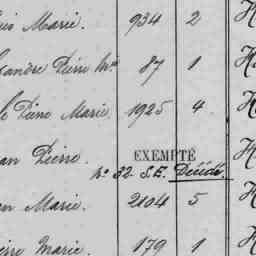 uis Marie. 934 2 H
xandre Pierre M.ie 87 1 H
le Pierre Marie 1925 4 H
ean Pierre. EXEMPTÉ H
No 32. S.E. Décédé.
en Marie. 2104 5 H
ierre Marie 179 1 H